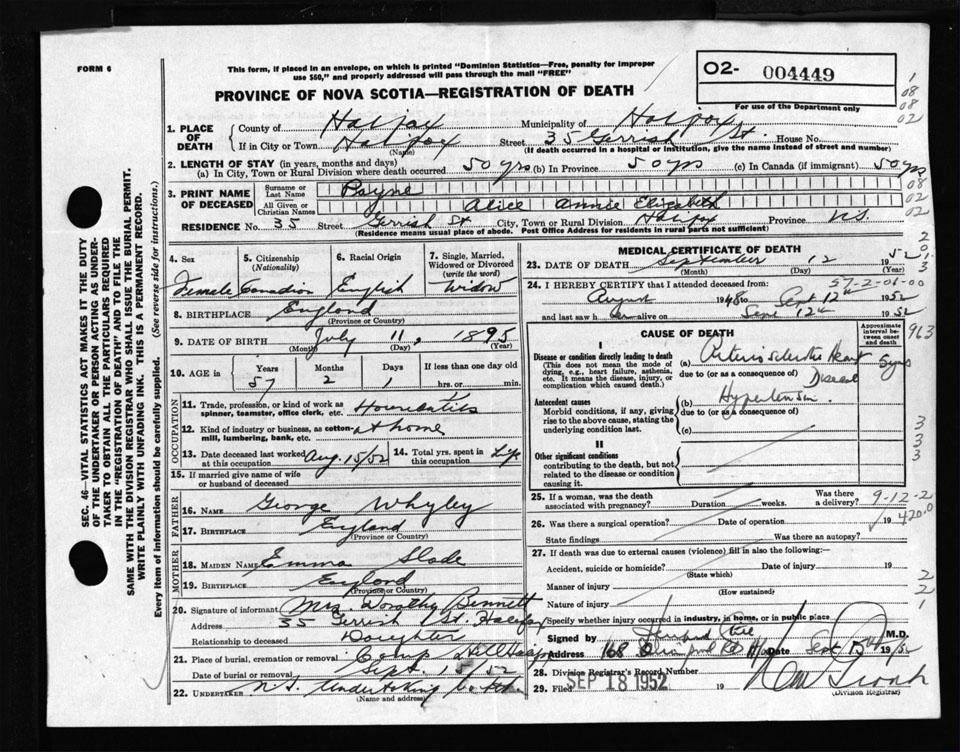 FORM 6
This form, if placed in an envelope, on which is printed "Dominion Statistics—Free, penalty for improper
use $50," and properly addressed will pass through the mail "FREE"
02- 004449
For use of the Department only
PROVINCE OF NOVA SCOTIA—REGISTRATION OF DEATH
1
08
08
02
1. PLACE OF DEATH
County of Halifax Municipality of Halifax
If in City or Town Halifax Street 35 Gerrish St. House No.
(Name) (If death occurred in a hospital or institution, give the name instead of street and number)
2. LENGTH OF STAY (in years, months and days)
(a) In City, Town or Rural Division where death occurred 50 yrs (b) In Province 50 yrs (c) In Canada (if immigrant) 50 yrs
3. PRINT NAME OF DECEASED
Surname or Last Name Payne
All Given or Christian Names Alice Annie Elizabeth
08
02
02
RESIDENCE No. 35 Street Gerrish St City, Town or Rural Division Halifax Province N.S.
(Residence means usual place of abode. Post Office Address for residents in rural parts not sufficient)
SEC. 46—VITAL STATISTICS ACT MAKES IT THE DUTY
OF THE UNDERTAKER OR PERSON ACTING AS UNDER-
TAKER TO OBTAIN ALL THE PARTICULARS REQUIRED
IN THE "REGISTRATION OF DEATH" AND TO FILE THE
SAME WITH THE DIVISION REGISTRAR WHO SHALL ISSUE THE BURIAL PERMIT.
WRITE PLAINLY WITH UNFADING INK. THIS IS A PERMANENT RECORD.
Every item of information should be carefully supplied. (See reverse side for instructions.)
4. Sex
Female
5. Citizenship
(Nationality)
Canadian
6. Racial Origin
English
7. Single, Married, Widowed or Divorced
(write the word)
Widow
8. BIRTHPLACE England
(Province or Country)
9. DATE OF BIRTH July 11, 1895
(Month) (Day) (Year)
10. AGE in Years Months Days If less than one day old
57 2 1 hrs. or min.
OCCUPATION
11. Trade, profession, or kind of work as
spinner, teamster, office clerk, etc.
12. Kind of industry or business, as cotton-
mill, lumbering, bank, etc. at home
13. Date deceased last worked
at this occupation Aug. 15/52
14. Total yrs. spent in
this occupation Life
15. If married give name of wife
or husband of deceased
FATHER
16. NAME George Whyley
17. BIRTHPLACE England
(Province or Country)
MOTHER
18. MAIDEN NAME Emma Slade
19. BIRTHPLACE England
(Province or Country)
20. Signature of informant Mrs. Dorothy Bennett
Address 35 Gerrish St. Halifax
Relationship to deceased Daughter
21. Place of burial, cremation or removal Camp Hill
Date of burial or removal Sept. 15/52
22. UNDERTAKER N.S. Undertaking Co.
(Name and address)
MEDICAL CERTIFICATE OF DEATH
23. DATE OF DEATH September 12 1952
(Month) (Day) (Year)
2
0
1
3
24. I HEREBY CERTIFY that I attended deceased from: 57-2-01-00
August 1948 to Sept 12th 1952
and last saw her alive on Sept 12th 1952
CAUSE OF DEATH
Approximate interval between onset and death
963
I
Disease or condition directly leading to death
(This does not mean the mode of
dying, e.g., heart failure, asthenia,
etc. It means the disease, injury, or
complication which caused death.)
(a) Arteriosclerotic Heart Disease
due to (or as a consequence of)
Antecedent causes
Morbid conditions, if any, giving
rise to the above cause, stating the
underlying condition last.
(b) Hypertension
due to (or as a consequence of)
(c)
3
3
3
II
Other significant conditions
contributing to the death, but not
related to the disease or condition
causing it.
25. If a woman, was the death
associated with pregnancy? Duration weeks. Was there
a delivery? 9-12-2
26. Was there a surgical operation? Date of operation 19
4200
State findings Was there an autopsy?
27. If death was due to external causes (violence) fill in also the following:—
Accident, suicide or homicide? Date of injury 19
(State which)
Manner of injury
(How sustained)
Nature of injury
2
2
1
Specify whether injury occurred in industry, in home, or in public place
Signed by M.D.
Address 168 Date Sept 15th 1952
28. Division Registrar's Record Number
29. Filed SEP 18 1952
(Division Registrar)